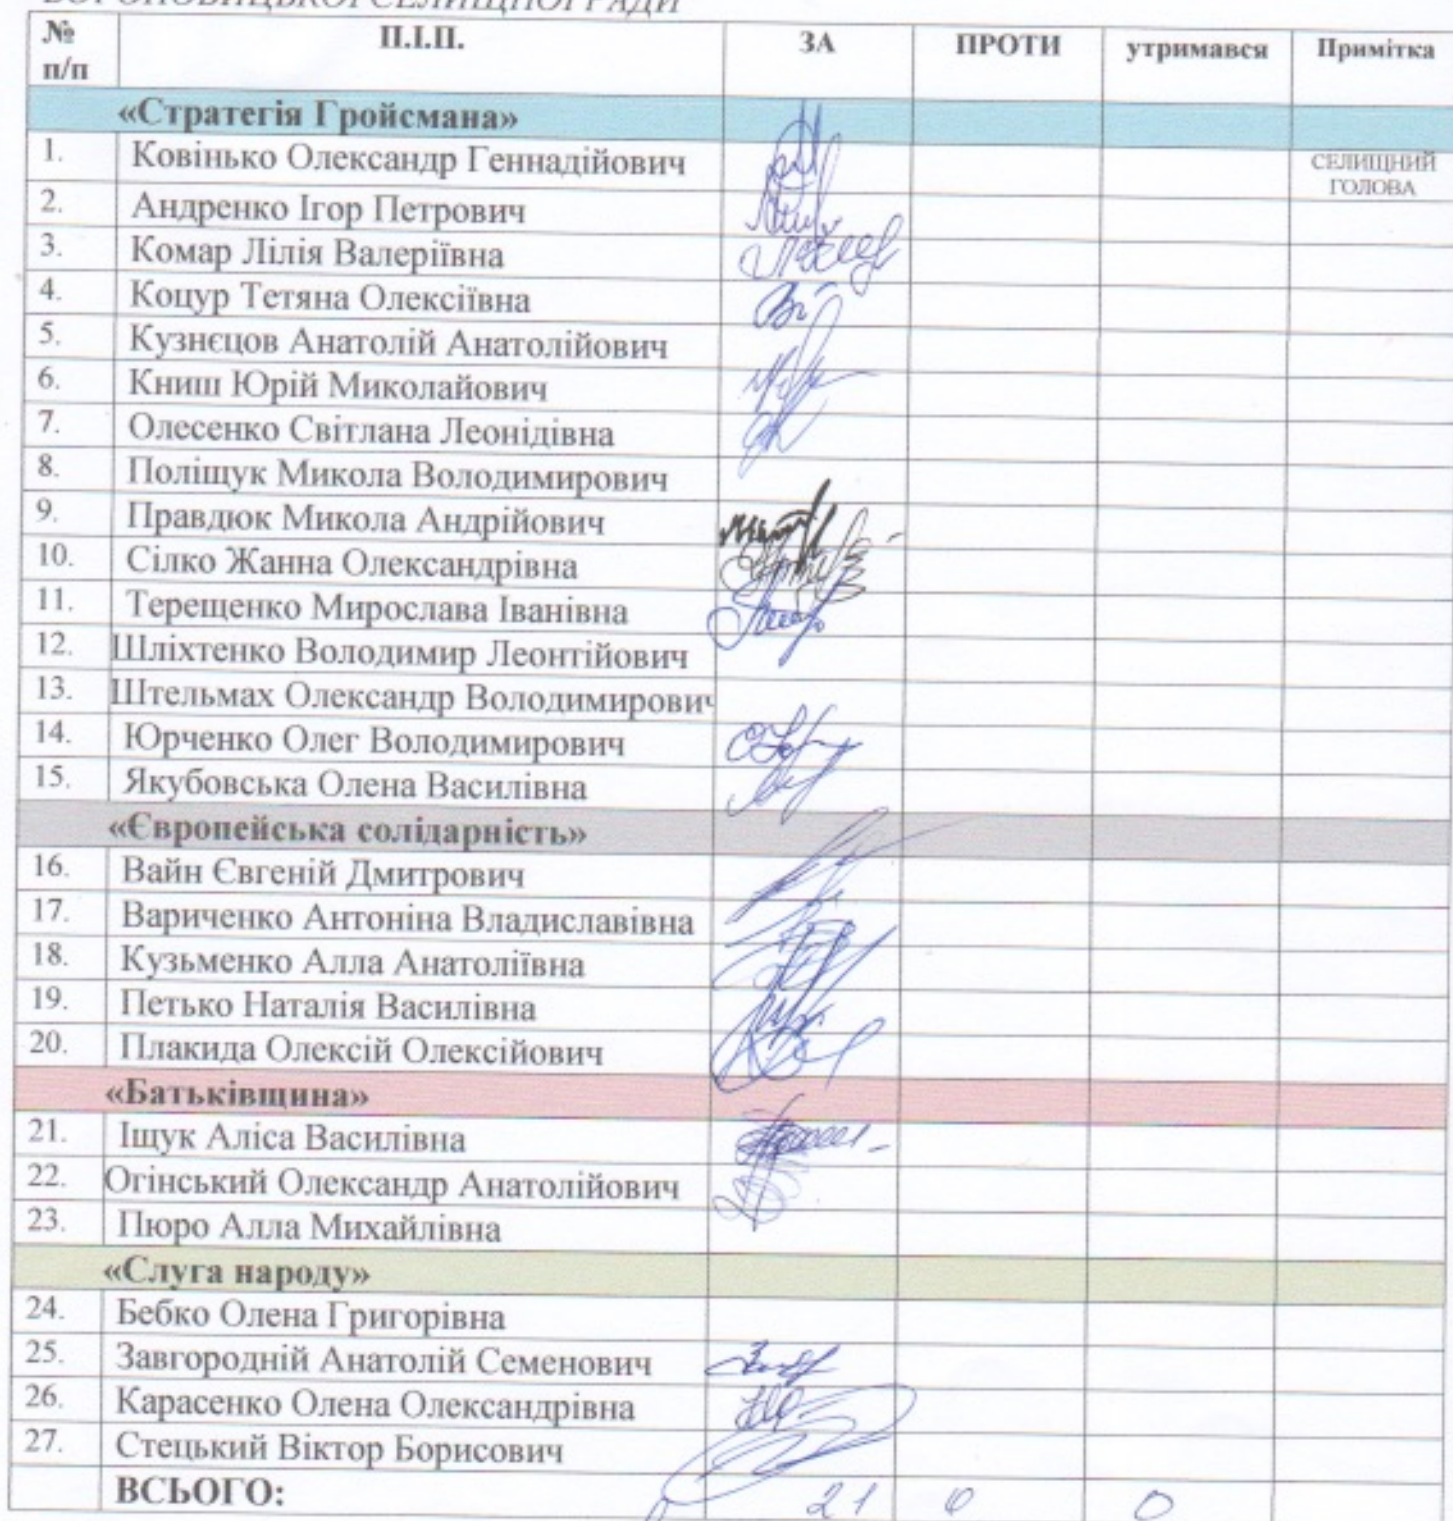 ВОРОНОВИЦЬКОЇ СЕЛИЩНОЇ РАДИ
№ п/п П.І.П. ЗА ПРОТИ утримався Примітка
«Стратегія Гройсмана»
1. Ковінько Олександр Геннадійович СЕЛИЩНИЙ ГОЛОВА
2. Андренко Ігор Петрович
3. Комар Лілія Валеріївна
4. Коцур Тетяна Олексіївна
5. Кузнєцов Анатолій Анатолійович
6. Книш Юрій Миколайович
7. Олесенко Світлана Леонідівна
8. Поліщук Микола Володимирович
9. Правдюк Микола Андрійович
10. Сілко Жанна Олександрівна
11. Терещенко Мирослава Іванівна
12. Шліхтенко Володимир Леонтійович
13. Штельмах Олександр Володимирович
14. Юрченко Олег Володимирович
15. Якубовська Олена Василівна
«Європейська солідарність»
16. Вайн Євгеній Дмитрович
17. Вариченко Антоніна Владиславівна
18. Кузьменко Алла Анатоліївна
19. Петько Наталія Василівна
20. Плакида Олексій Олексійович
«Батьківщина»
21. Іщук Аліса Василівна
22. Огінський Олександр Анатолійович
23. Пюро Алла Михайлівна
«Слуга народу»
24. Бебко Олена Григорівна
25. Завгородній Анатолій Семенович
26. Карасенко Олена Олександрівна
27. Стецький Віктор Борисович
ВСЬОГО: 21 0 0